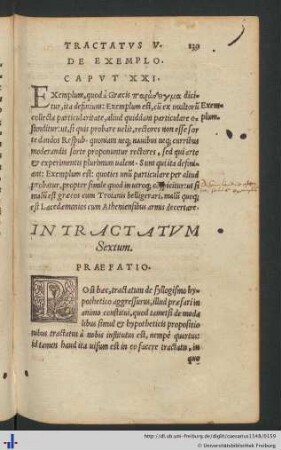 TRACTATVS V.
DE EXEMPLO.
CAPVT XXI.
Exemplum, quod à Græcis παράδειγμα dici-
tur, ita definiunt: Exemplum est, cùm ex multorũ
Exem-
plum.
collecta particularitate, aliud quiddam particulare o-
stenditur: ut, si quis probare uelit, rectores non esse sor-
te dandos Resp̃ub. quoniam neq; nauibus neq; curribus
moderandis sorte proponuntur rectores, sed qui arte
& experimentis plurimum ualent. Sunt qui ita defini-
ant: Exemplum est: quoties unũ particulare per aliud
probatur, propter simile quod in utroq; conspicitur: ut si
malũ est græcos cum Troianis belligerari, malũ quoq;
est Lacedæmonios cum Atheniensibus armis decertare.
IN TRACTATVM
Sextum.
PRAEFATIO.
Post hæc, tractatum de syllogismo hy-
pothetico aggressurus, illud præfari in
animo constitui, quod tametsi de moda
libus simul & hypotheticis propositio
nibus tractatus à nobis institutus est, nempè quartus:
id tamen haud ita uisum est in eo facere tractatu, in
quo
http://dl.ub.uni-freiburg.de/diglit/caesarius1548/0159
© Universitätsbibliothek Freiburg